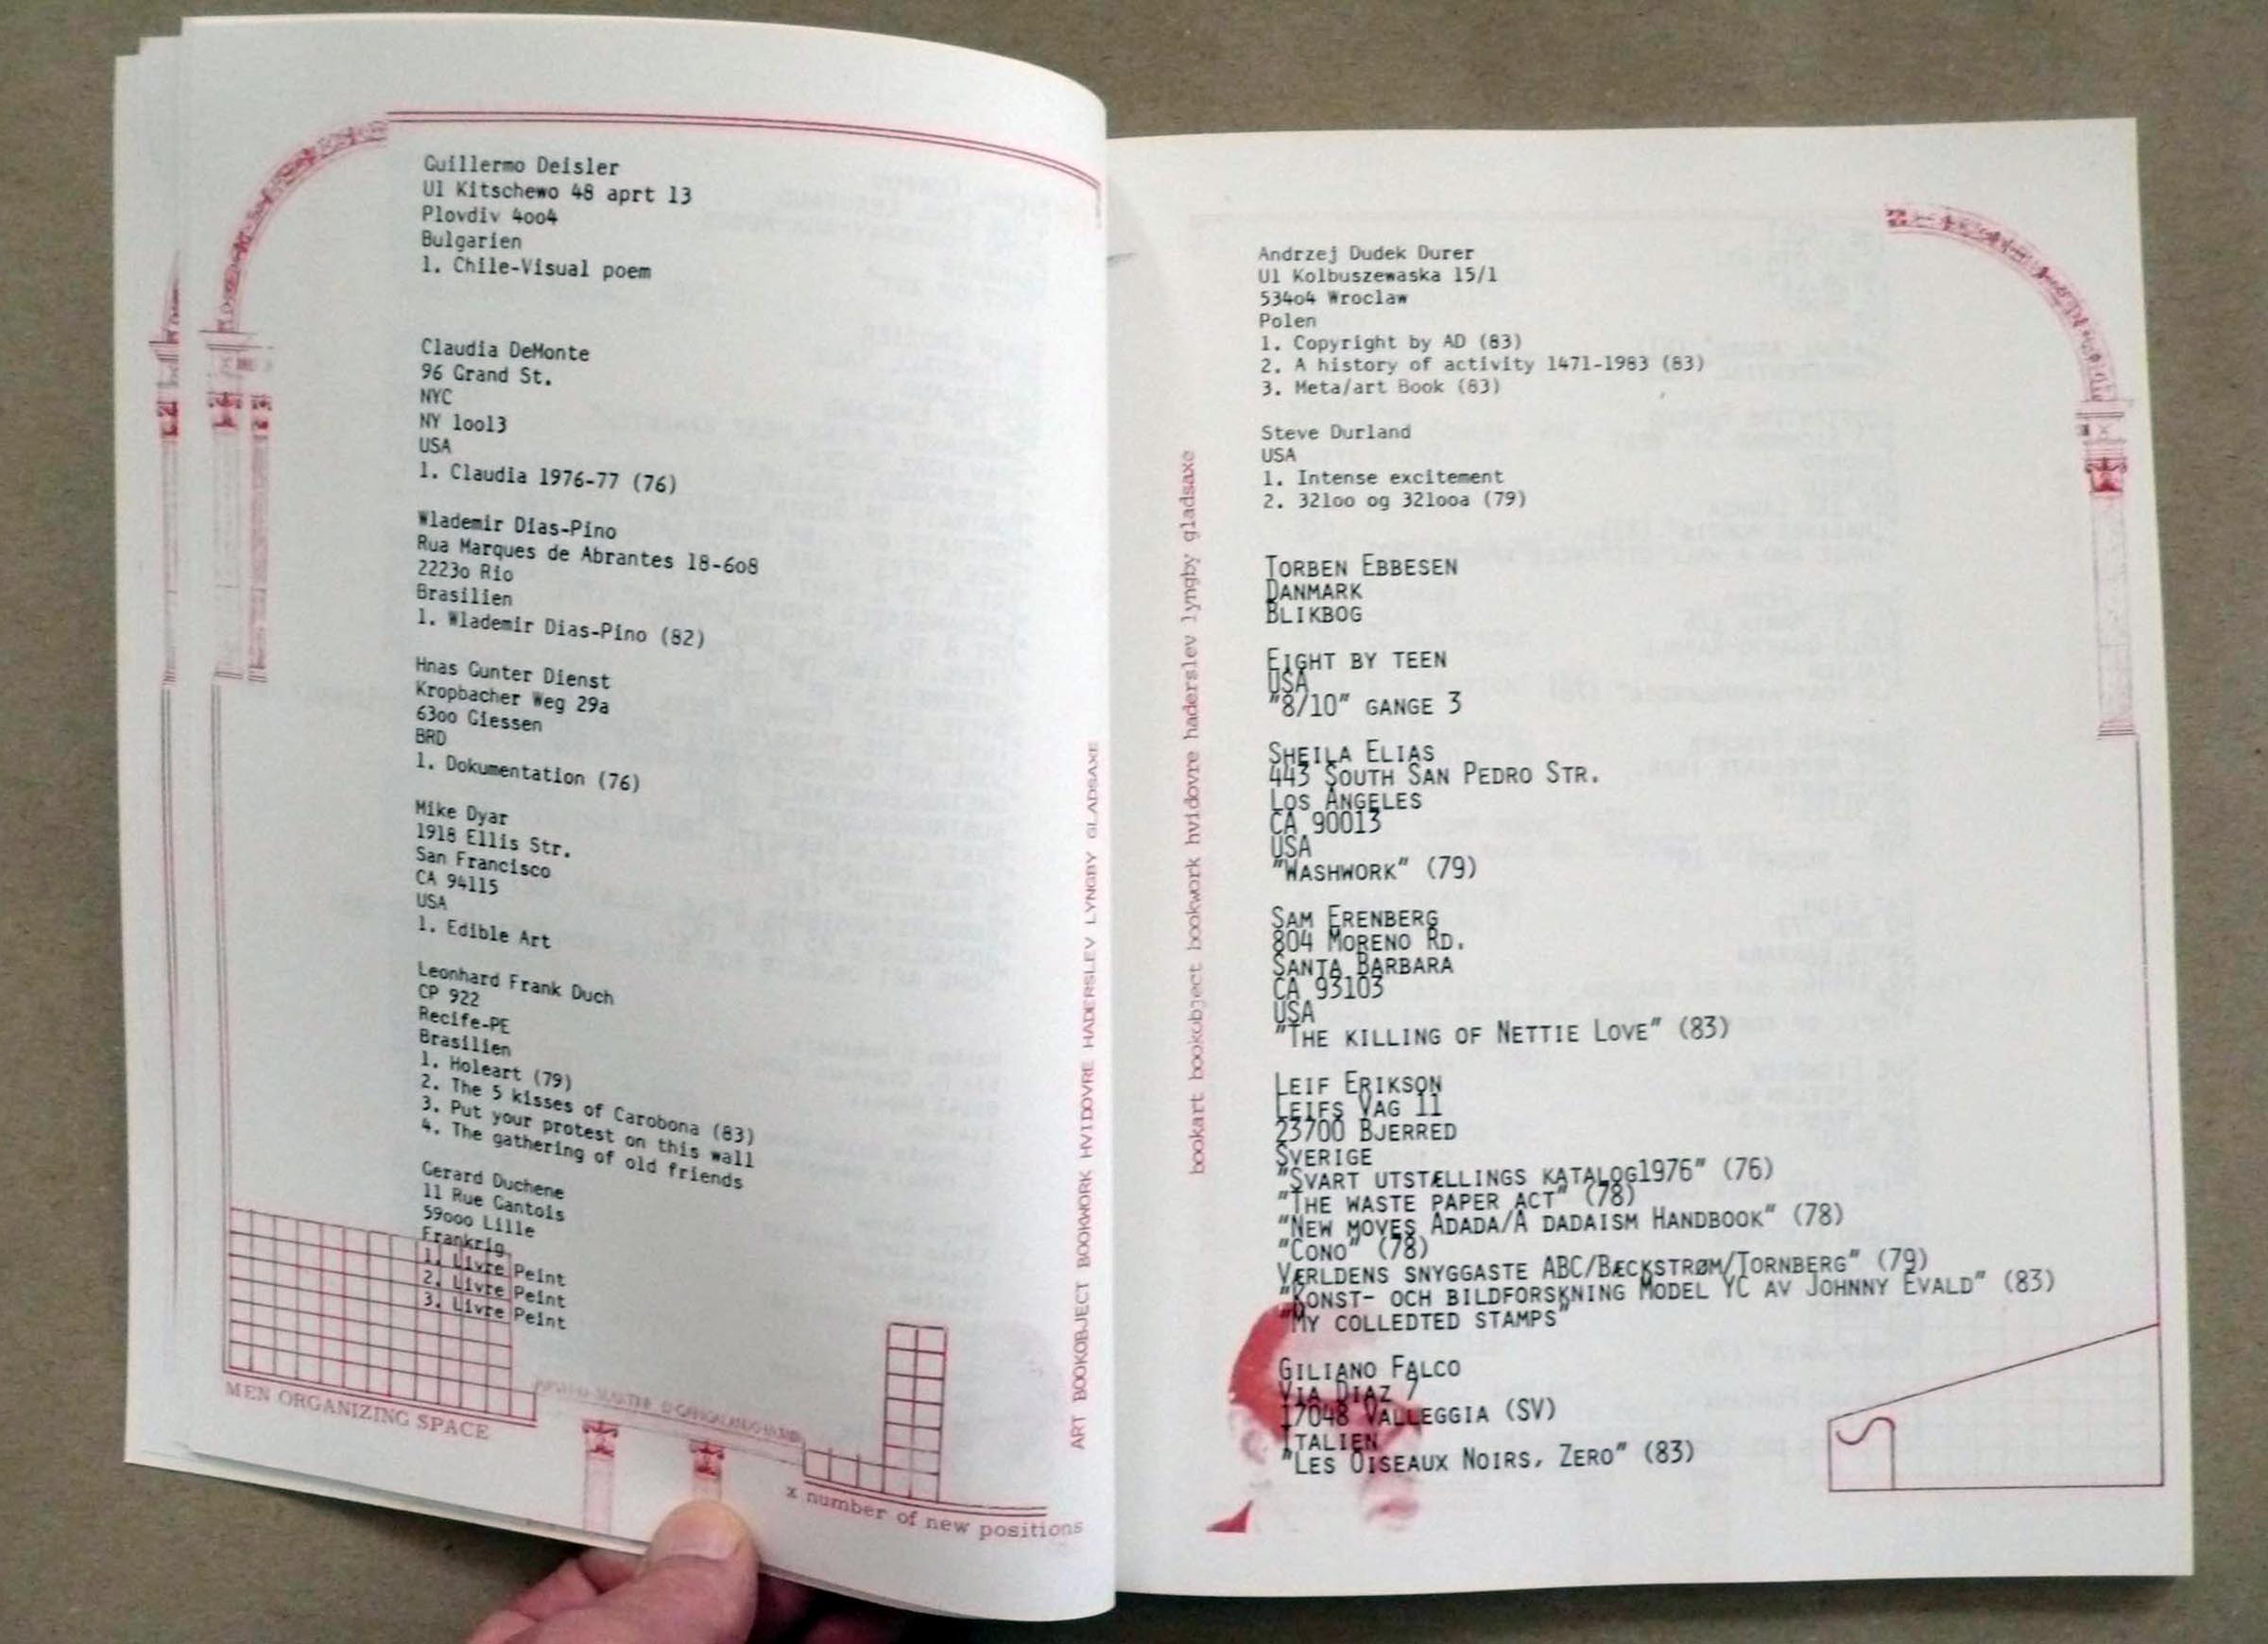 Guillermo Deisler
Ul Kitschewo 48 aprt 13
Plovdiv 4oo4
Bulgarien
1. Chile-Visual poem
Claudia DeMonte
96 Grand St.
NYC
NY 1oo13
USA
1. Claudia 1976-77 (76)
Wlademir Dias-Pino
Rua Marques de Abrantes 18-6o8
2223o Rio
Brasilien
1. Wlademir Dias-Pino (82)
Hnas Gunter Dienst
Kropbacher Weg 29a
63oo Giessen
BRD
1. Dokumentation (76)
Mike Dyar
1918 Ellis Str.
San Francisco
CA 94115
USA
1. Edible Art
Leonhard Frank Duch
CP 922
Recife-PE
Brasilien
1. Holeart (79)
2. The 5 kisses of Carobona (83)
3. Put your protest on this wall
4. The gathering of old friends
Gerard Duchene
11 Rue Gantois
59ooo Lille
Frankrig
1. Livre Peint
2. Livre Peint
3. Livre Peint
MEN ORGANIZING SPACE
x number of new positions
ART BOOKOBJECT BOOKWORK HVIDOVRE HADERSLEV LYNGBY GLADSAXE
bookart bookobject bookwork hvidovre haderslev lyngby gladsaxe
Andrzej Dudek Durer
Ul Kolbuszewaska 15/1
534o4 Wroclaw
Polen
1. Copyright by AD (83)
2. A history of activity 1471-1983 (83)
3. Meta/art Book (83)
Steve Durland
USA
1. Intense excitement
2. 321oo og 321ooa (79)
TORBEN EBBESEN
DANMARK
BLIKBOG
EIGHT BY TEEN
USA
"8/10" GANGE 3
SHEILA ELIAS
443 SOUTH SAN PEDRO STR.
LOS ANGELES
CA 90013
USA
"WASHWORK" (79)
SAM ERENBERG
804 MORENO RD.
SANTA BARBARA
CA 93103
USA
"THE KILLING OF NETTIE LOVE" (83)
LEIF ERIKSON
LEIFS VAG 11
23700 BJERRED
SVERIGE
"SVART UTSTÆLLINGS KATALOG1976" (76)
"THE WASTE PAPER ACT" (78)
"NEW MOVES ADADA/A DADAISM HANDBOOK" (78)
"CONO" (78)
VÆRLDENS SNYGGASTE ABC/BÆCKSTRØM/TORNBERG" (79)
"KONST- OCH BILDFORSKNING MODEL YC AV JOHNNY EVALD" (83)
"MY COLLEDTED STAMPS"
GILIANO FALCO
VIA DIAZ 7
17048 VALLEGGIA (SV)
ITALIEN
"LES OISEAUX NOIRS, ZERO" (83)